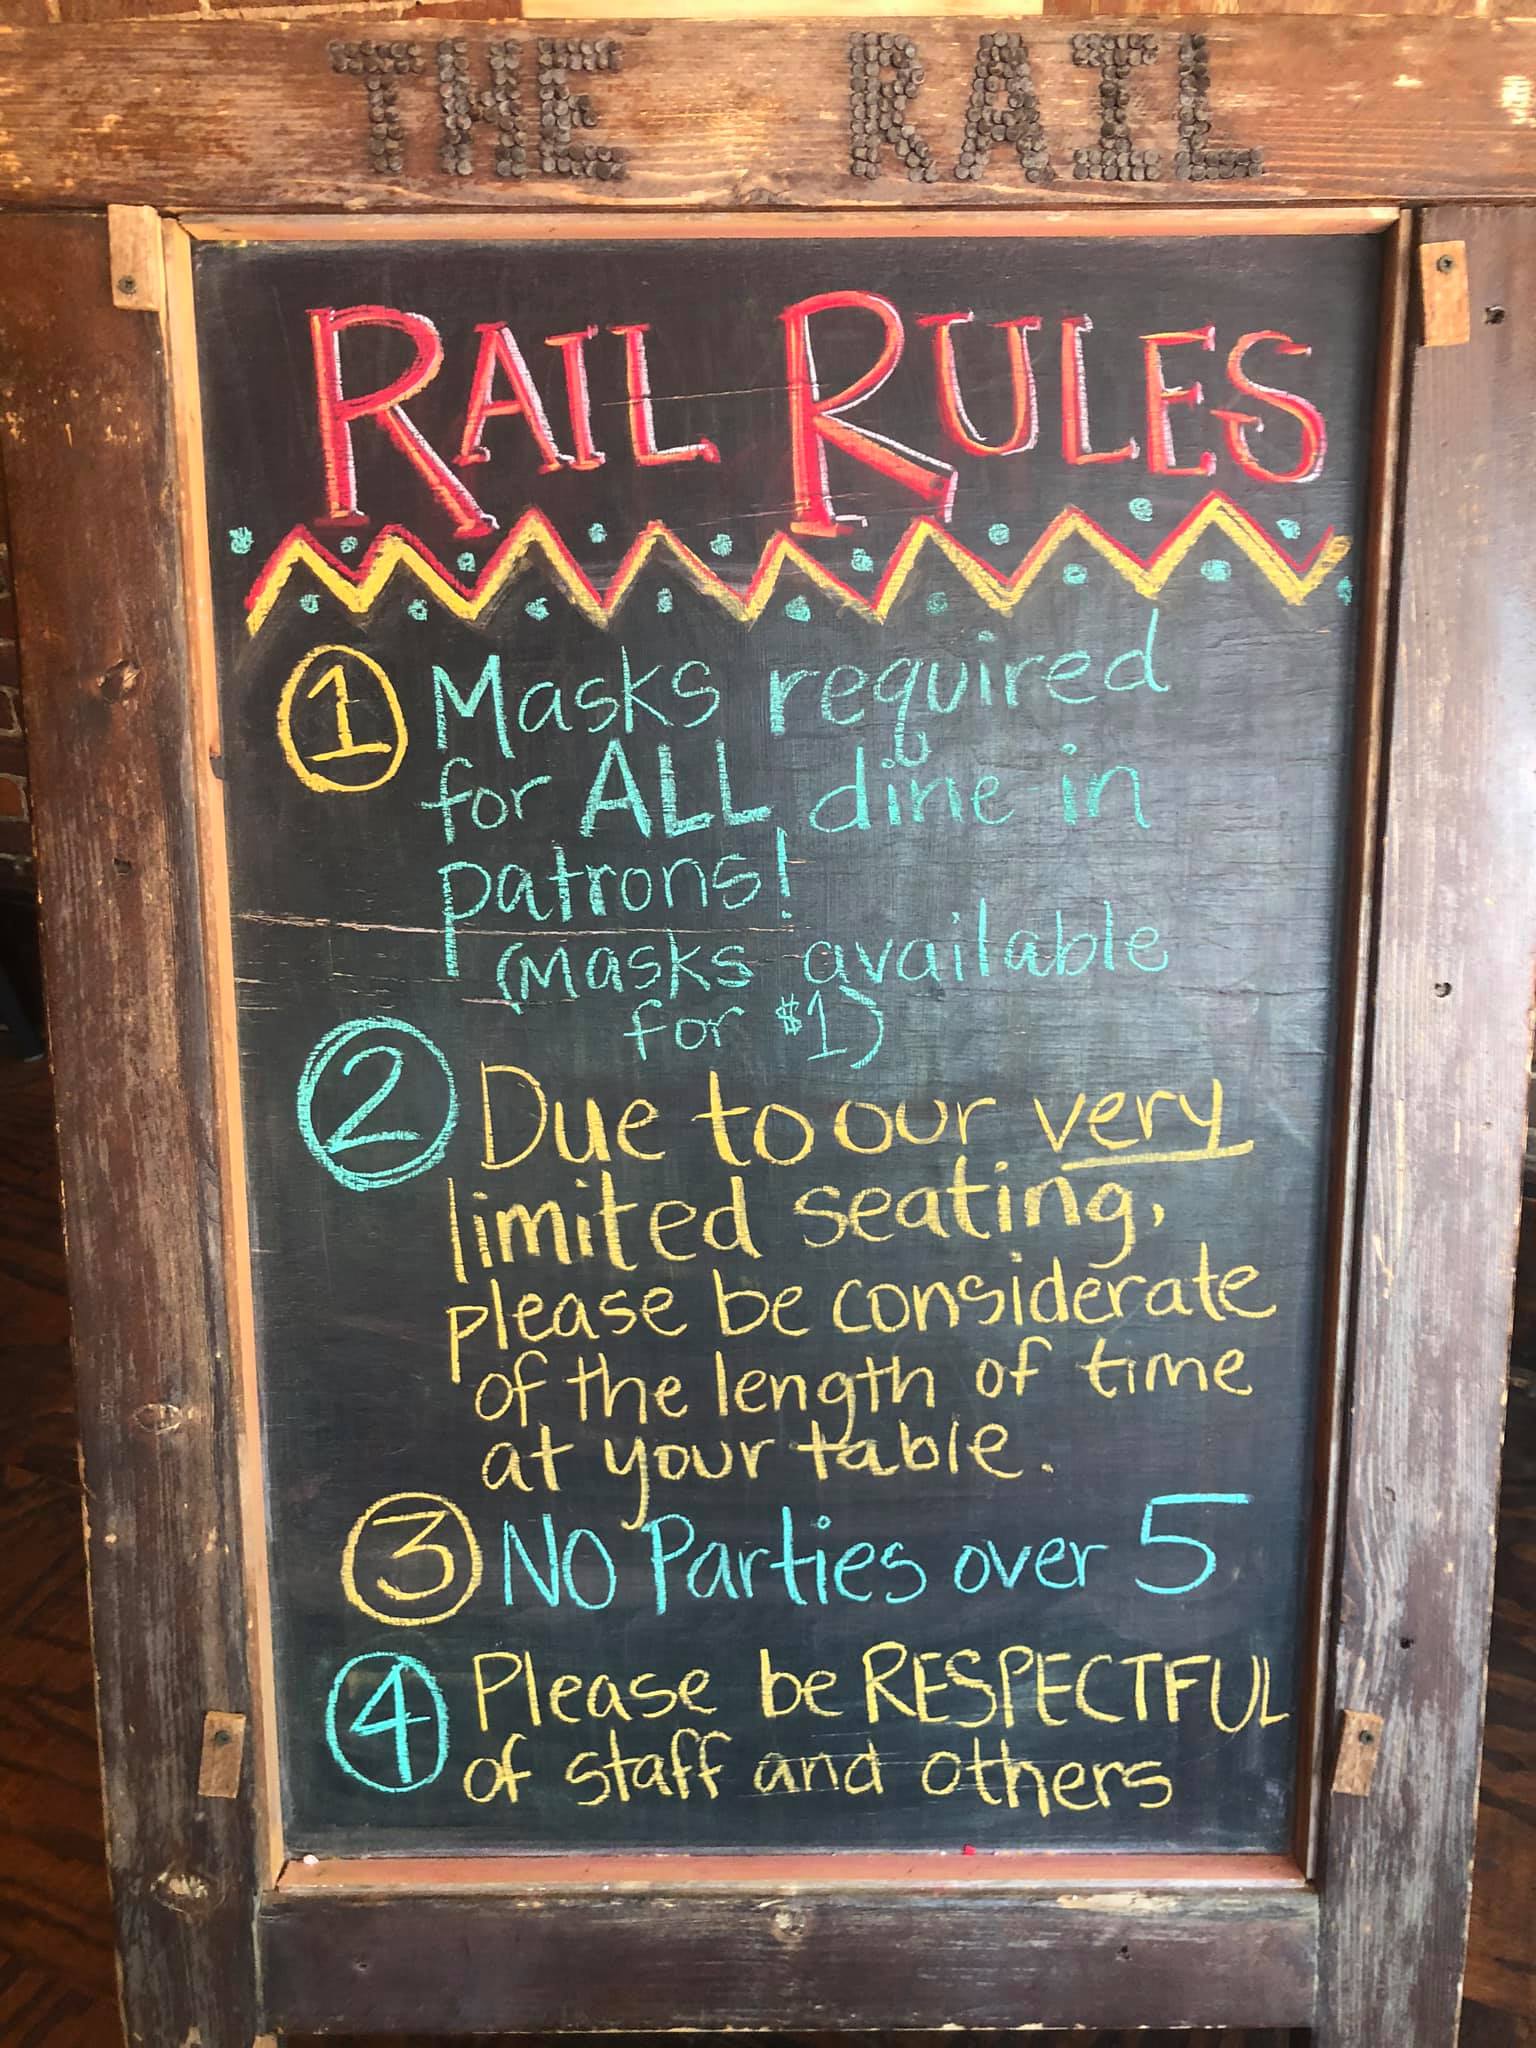 THE RAIL
RAIL RULES
1 Masks required
for ALL dine-in
patrons!
(Masks available
for $1)
2 Due to our very
limited seating,
please be considerate
of the length of time
at your table.
3 NO Parties over 5
4 Please be RESPECTFUL
of staff and others